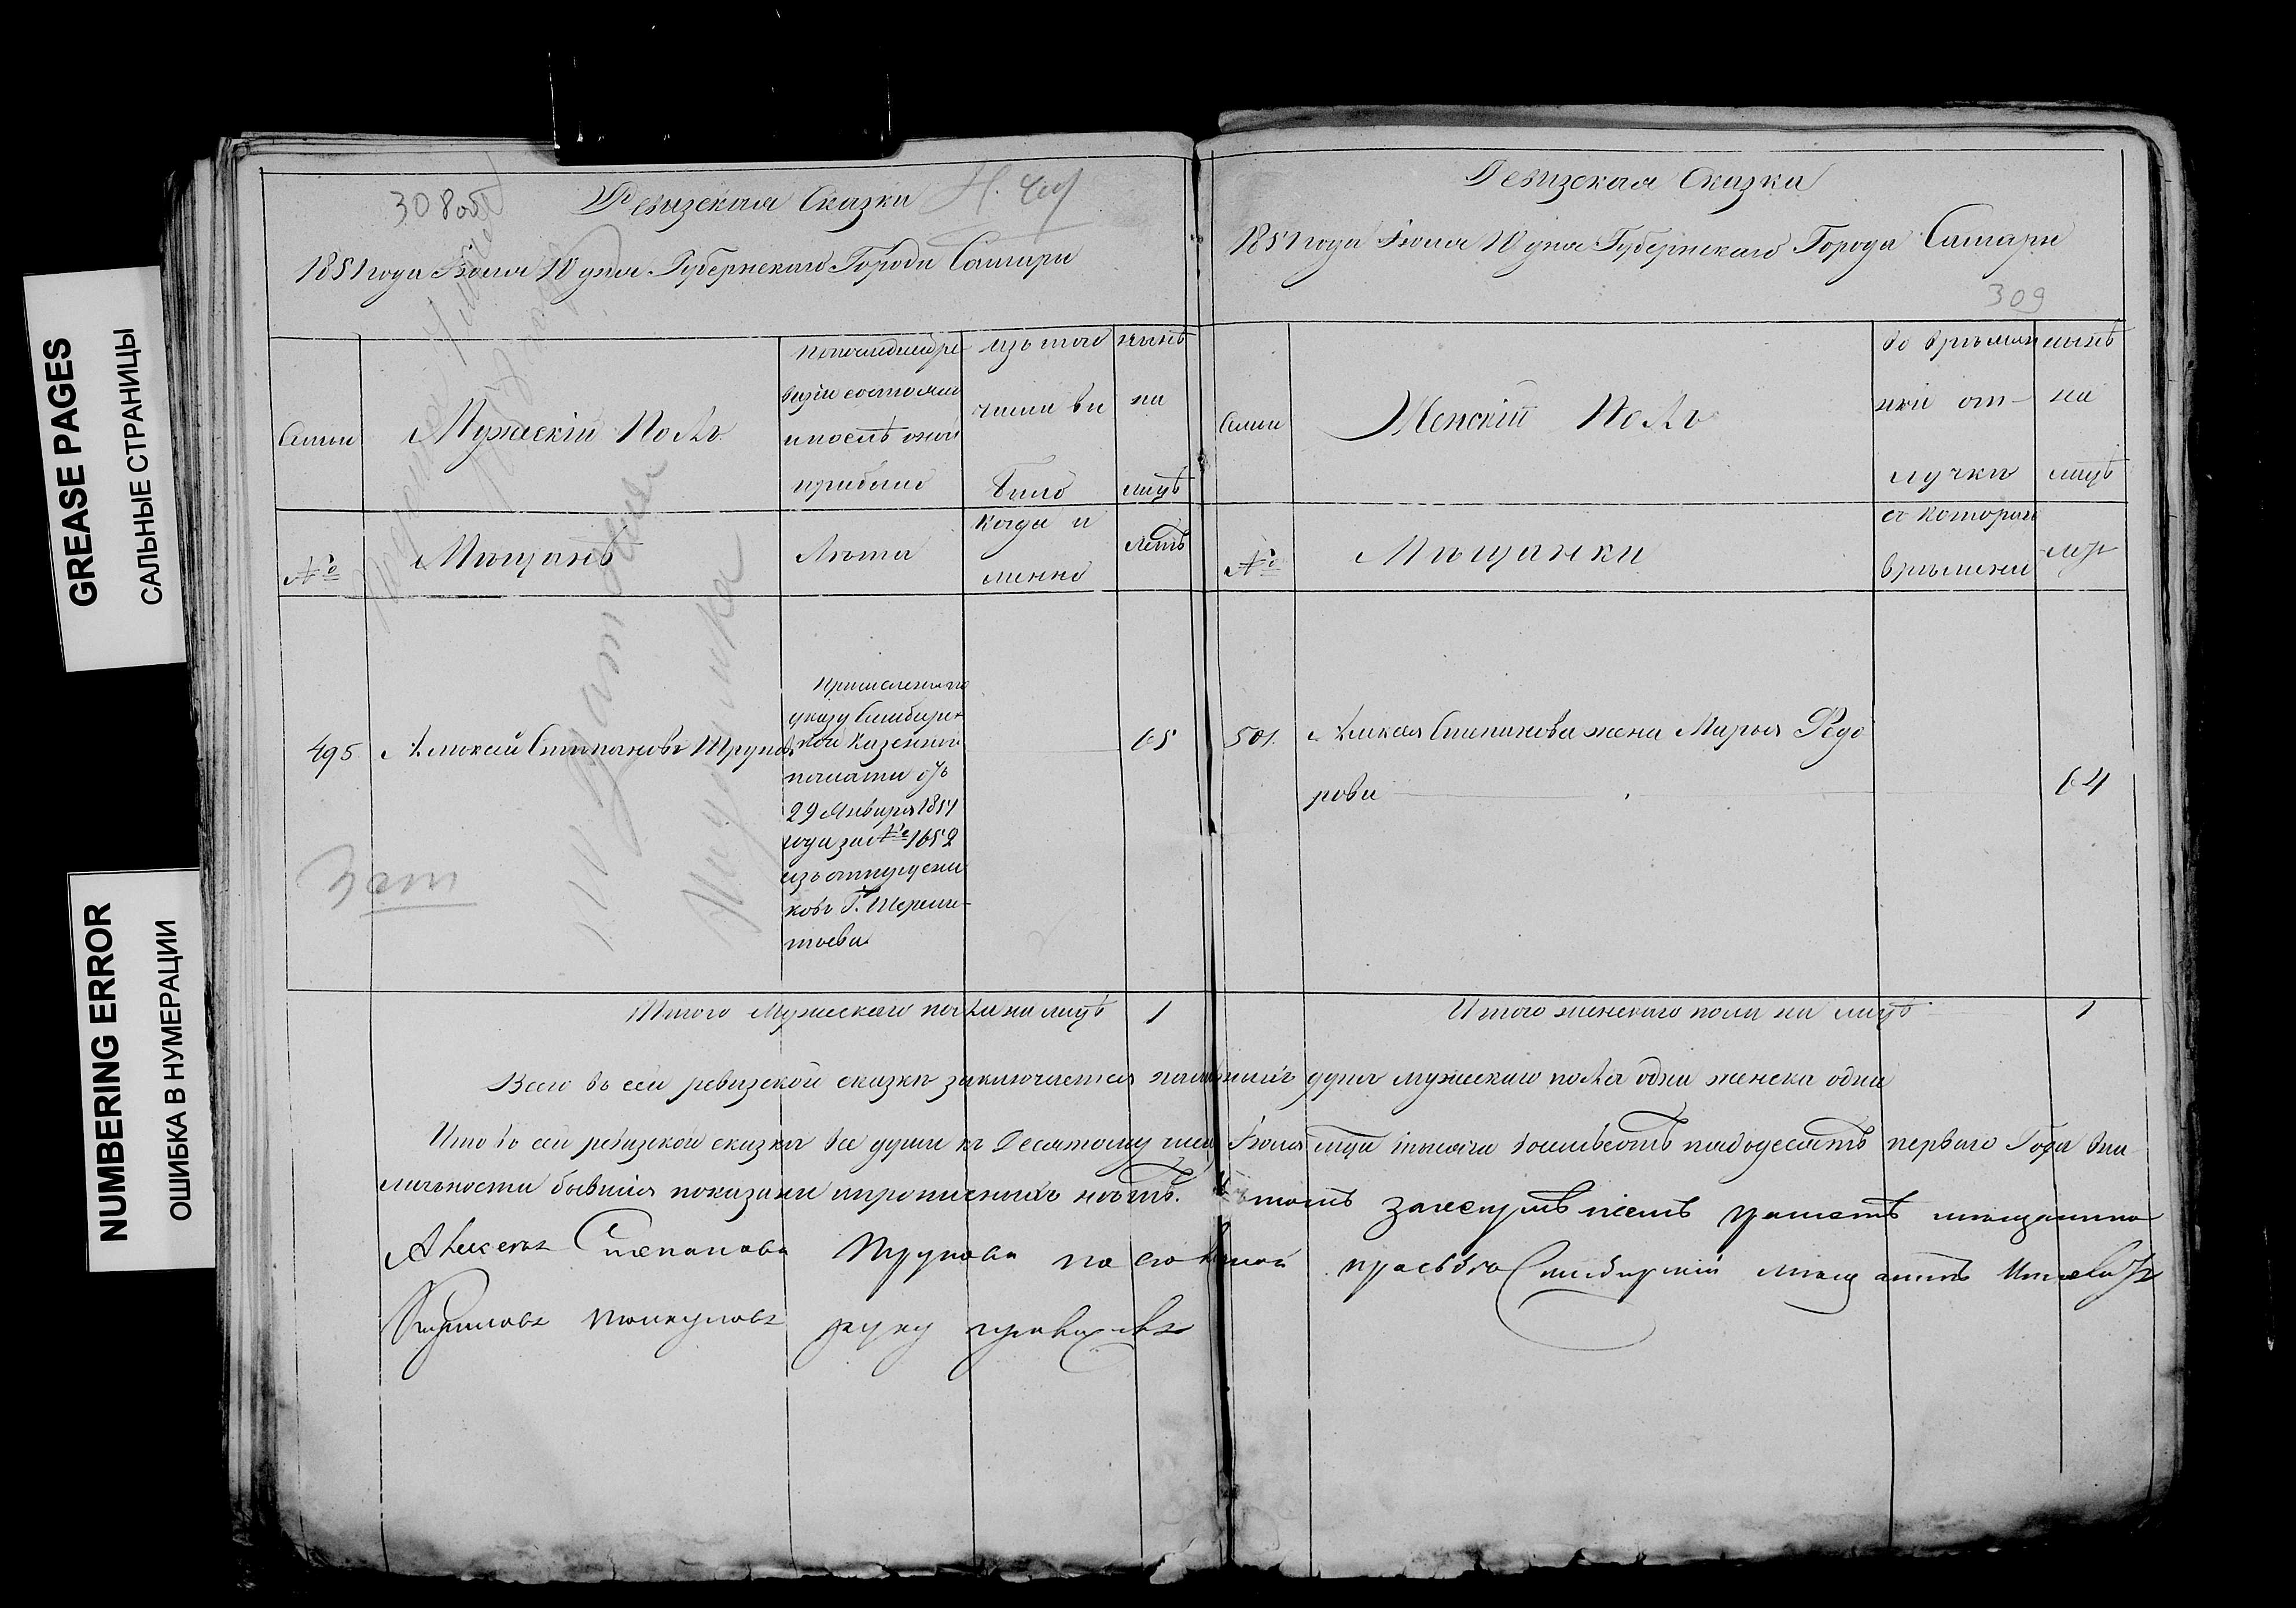 GREASE PAGES
САЛЬНЫЕ СТРАНИЦЫ
NUMBERING ERROR
ОШИБКА В НУМЕРАЦИИ
308об
Ревизская Сказка
1851 года Іюля 10 дня Губернскаго Города Самары
Семьи
Мужескій Полъ
по последней ре-
визіи состояло
и послѣ оной
прибыло
изъ того
числа вы
было
нынѣ
на
лицѣ
№
Мѣщанъ
Лѣта
Когда и
менно
Летъ
495
Алексей Степановъ Труновъ
Причисленъ по
указу Симбирс
кой Казенной
палаты отъ
29 Января 1851
года за № 1652
изъ отпущени
ковъ Г. Шереме-
тьева
65
Зат
Итого Мужескаго пола на лицѣ 1
Ревизская Сказка
1851 года Іюля 10 дня Губернскаго Города Самары
309
Семьи
Женскій Полъ
во времян
ной от-
лучки
нынѣ
на
лицѣ
№
Мѣщанки
съ котораго
времяни
501.
Алексея Степанова жена Марья Федо
рова
64
Итого женскаго пола на лицѣ 1
Всего въ сей ревизской сказки заключается наличныхъ душъ мужескаго пола одна женска одна
Что въ сей ревизской сказки все души къ Десятому числу Іюля тысяча восемьсотъ пядьдесятъ перваго Года в на
личности бывшія показаны и прописныхъ нѣтъ. Въ томъ
Алексея Степанова Трунова по его личной прозьбѣ Симбирскій мещанинъ
руку приложилъ